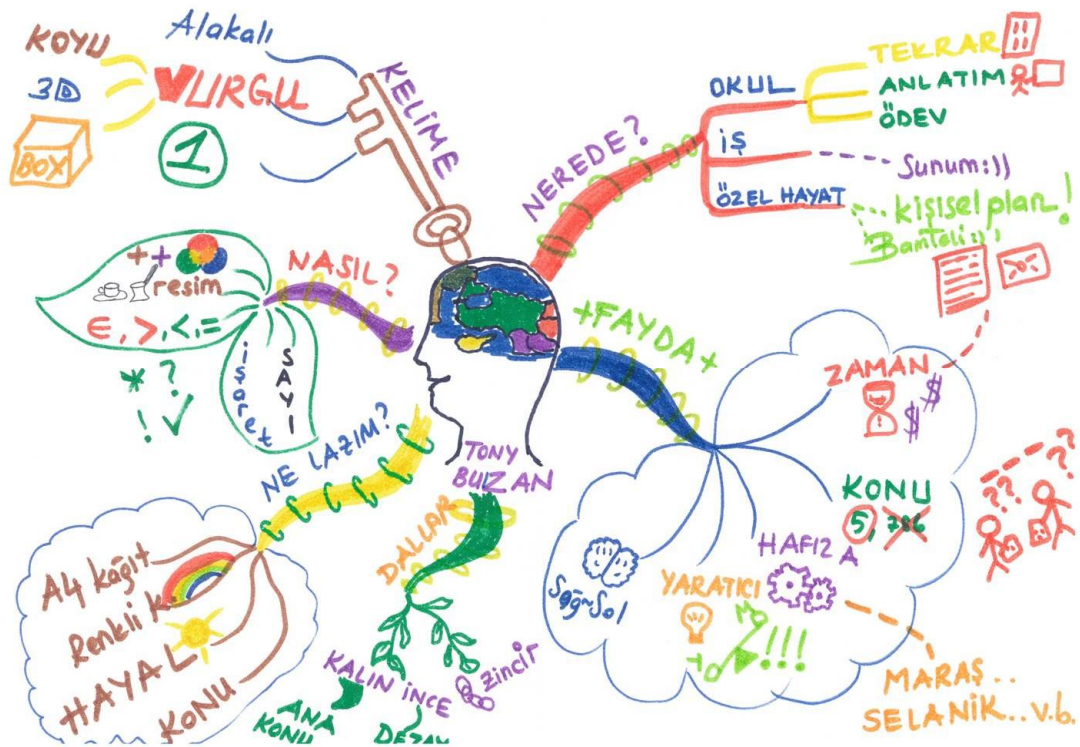 KOYU
3D
BOX
Alakalı
VURGU
1
KELİME
NEREDE?
OKUL
TEKRAR
ANLATIM
ÖDEV
İŞ
Sunum:))
ÖZEL HAYAT
kişisel plan!
Bamteli:))
NASIL?
++
resim
€,>,<,=
* ?
! ✓
işaret
SAYI
+FAYDA+
ZAMAN
$
$
KONU
5, 786
HAFIZA
YARATICI
!!!
Sağ~Sol
??
?
MARAŞ..
SELANİK..v.b.
NE LAZIM?
A4 kağıt
Renkli K.
HAYAL
KONU
TONY
BUZAN
DALLAR
KALIN İNCE
zincir
ANA
KONU
DEZAY